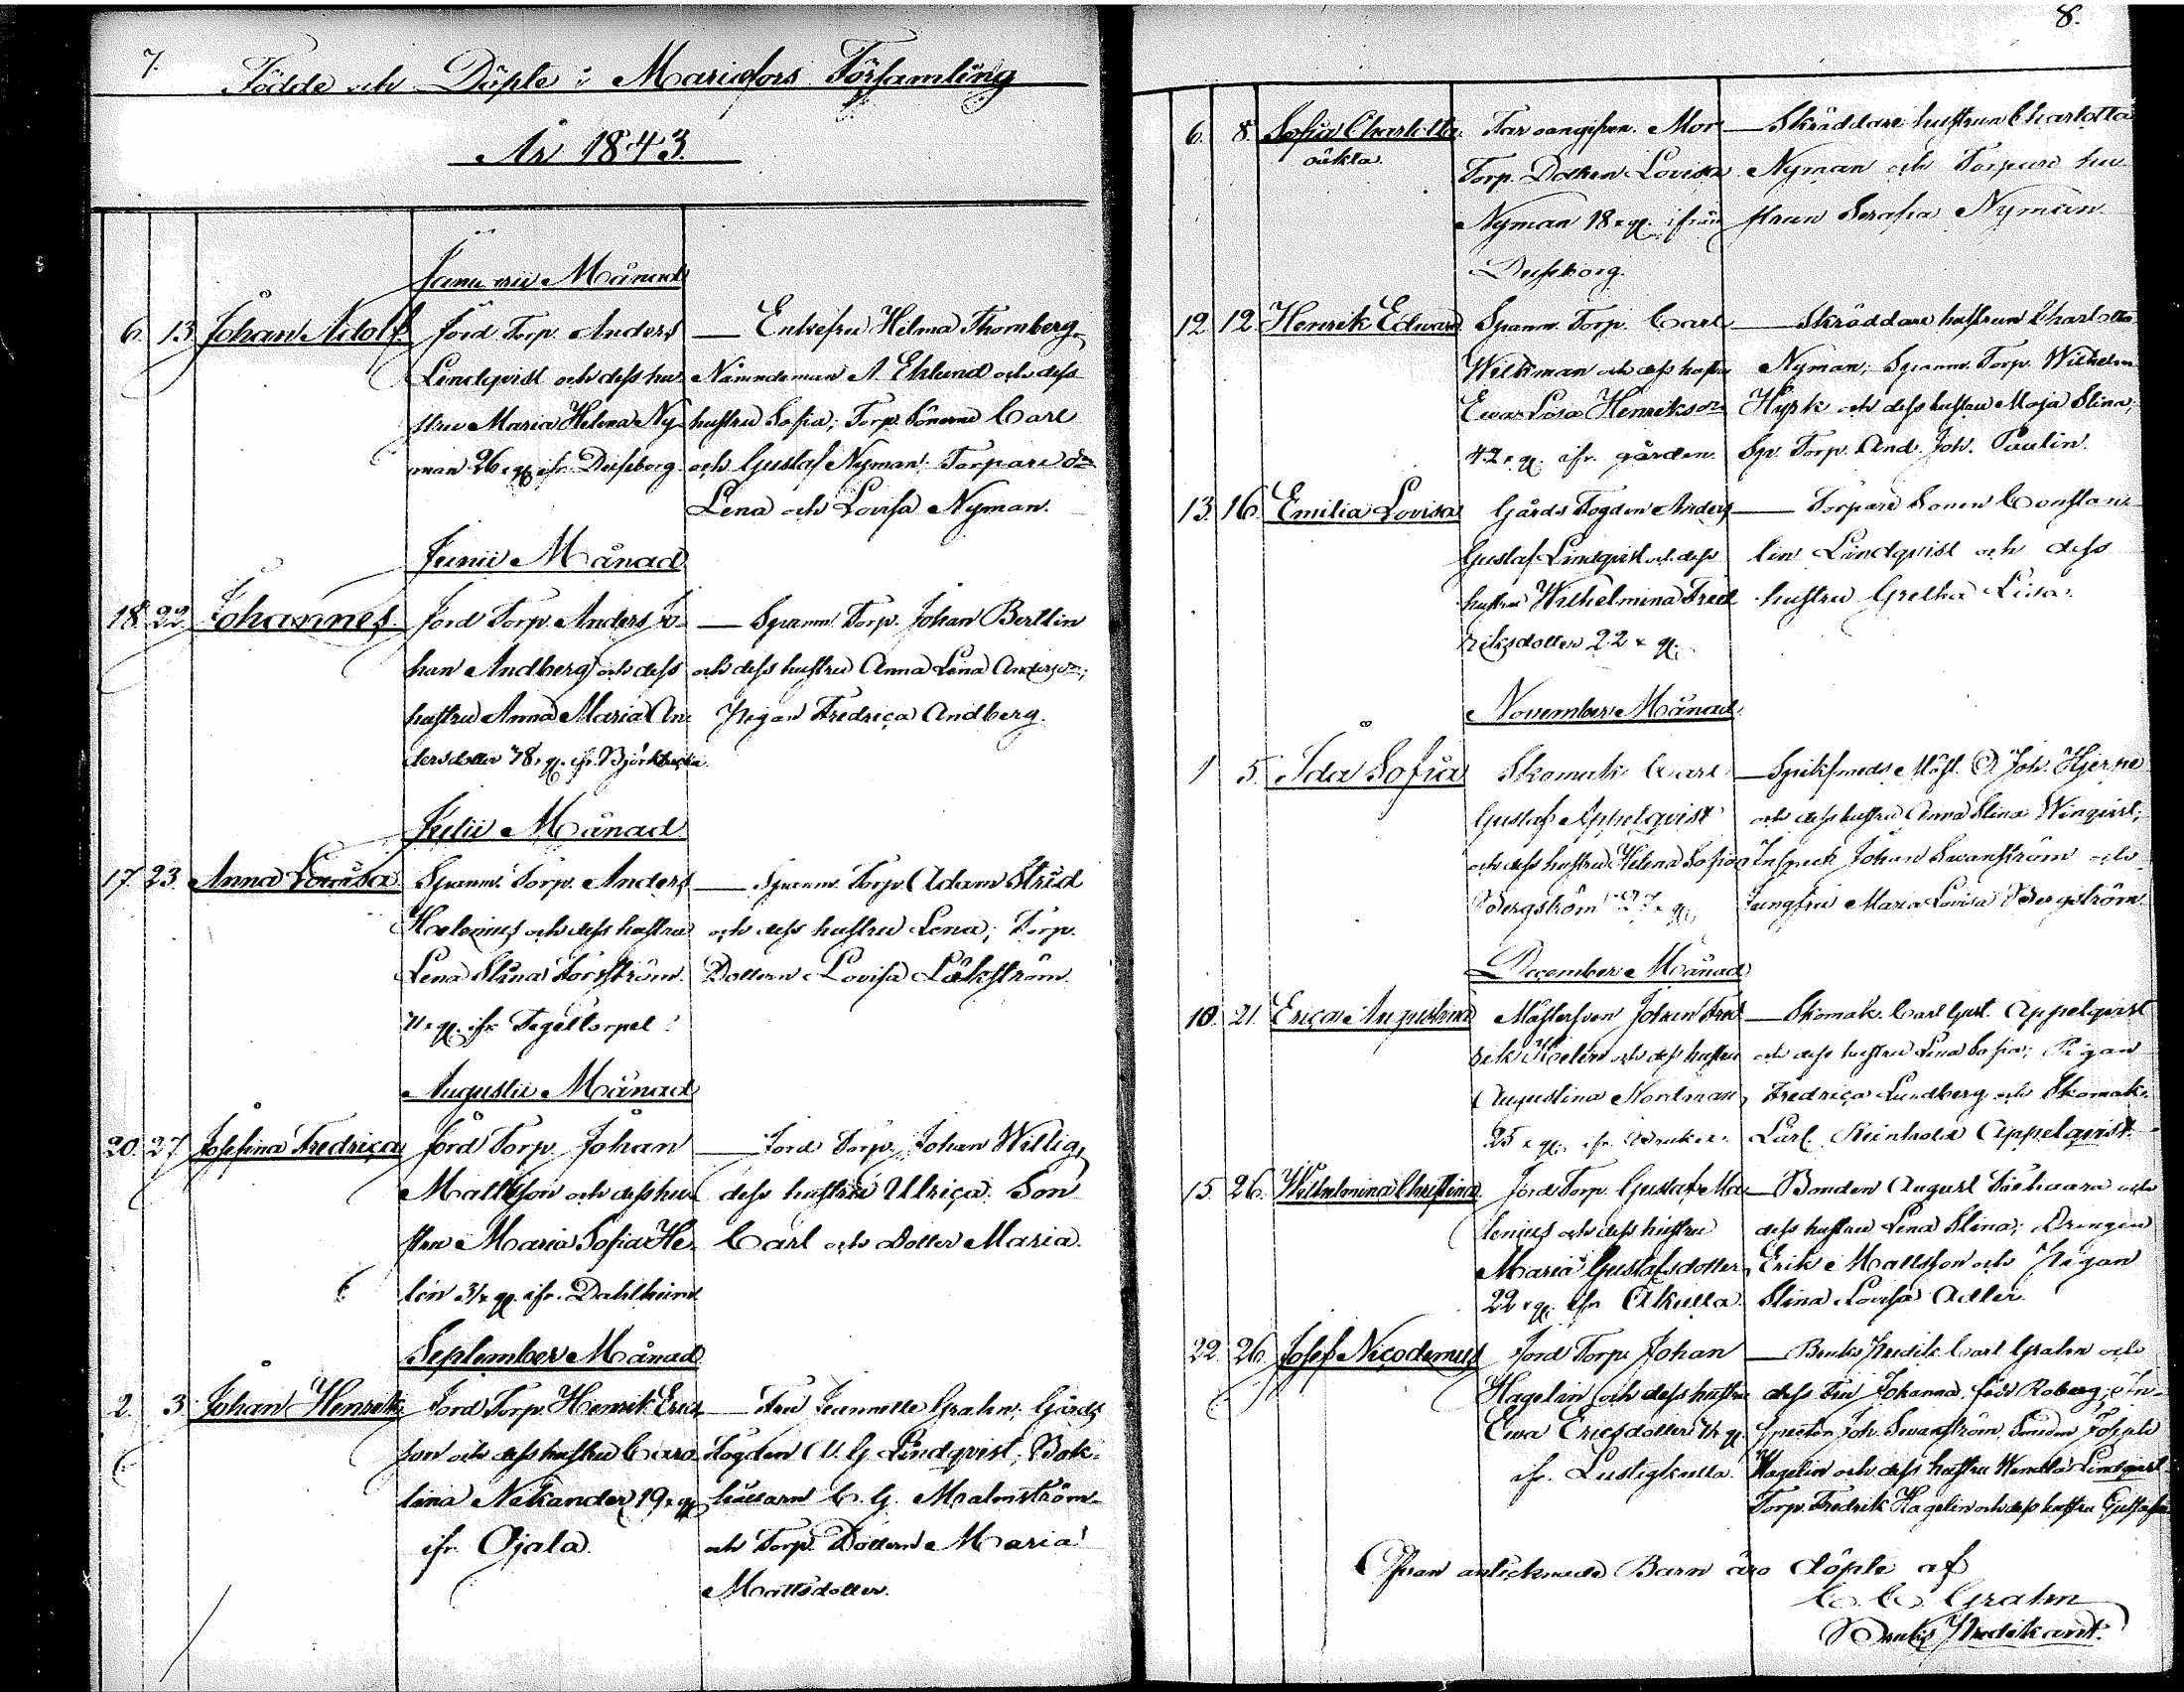 7.
Födde och Döpte i Mariefors Församling
År 1843.
Januarii Månad
6. 13. Johan Adolf. Jord Torp. Anders — Enkefru Hilma Thornberg,
Lindqvist och dess hu- Nämndeman A. Ehlund och dess
stru Maria Helena Ny- hustru Sofia; Torp. Sönerne Carl
man 26 ifr. och Gustaf Nyman. Torpare
Lena och Lovisa Nyman.
Junii Månad
18. 22. Johannes. Jord Torp. Anders Jo- — Spanm. Torp. Johan Bertlin
han Andberg och dess och dess hustru Anna Lena
hustru Anna Maria An- Pigan Fredrica Andberg.
dersdotter ifr.
Julii Månad
17. 23. Anna Lovisa Spanm. Torp. Anders — Spanm. Torp. Adam Strid
och dess hustru och dess hustru Lena; Torp.
Lena Stina Forsström. Dottern Lovisa Lökström.
ifr. Tegeltorpet
Augustii Månad
20. 27. Josefina Fredrica Jord Torp. Johan — Jord Torp. Johan Willig,
Mattsson och dess hu- dess hustru Ulrica. Son
stru Maria Sofia He- Carl och Dotter Maria.
lin 31 ifr. Dahlheim
September Månad
2. 3. Johan Henrik Jord Torp. Henrik Erics- — Fru Jeannette Grahn, Gårds
son och dess hustru Caro- Fogden A. G. Lindqvist; Bok-
lina Nekander 19 hållarn C. G. Malmström
ifr. Ojala. och Torp. Dottern Maria
Mattsdotter.
8.
6. 8. Sofia Charlotta. Far oangifven. Mor — Skräddare hustrun Charlotta
oäkta. Torp. Dottren Lovisa Nyman och Torpare hu-
Nyman 18 ifrån strun Serafia Nyman.
12. 12. Henrik Edward Spanm. Torp. Carl — Skräddare hustrun Charlotta
Wilkman och dess hustru Nyman; Spanm. Torp. Wilhelm
Ewa Lisa Henriksdr och dess hustru Maja Stina,
42 ifr. gården. Sp. Torp. And. Joh. Paulin.
13. 16. Emilia Lovisa Gårds Fogden Anders — Torpare Sonen Constan-
Gustaf Lindqvist och dess tin Lindqvist och dess
hustru Wilhelmina Fred- hustru Gretha Lisa.
riksdotter 22
November Månad.
1 5. Ida Sofia Skomak. Carl — Spiksmeds Mäst. Joh. Hjerpe
Gustaf Appelqvist och dess hustru Anna Stina Winqvist;
och dess hustru Helena Sofia Inspect. Johan Swanström och
Bergström 27 Jungfru Maria Lovisa Bergström.
December Månad
10. 21. Erica Augustina Mästersven Johan Fred- — Skomak. Carl Gust. Appelqvist
rik och dess hustru och dess hustru Lena Sofia; Pigan
Augustina Nordman, Fredrica Lundberg och Skomak.
25 ifr. Bruket. Lärl. Reinhold Appelqvist.
15. 26. Wilhelmina Christina Jord Torp. Gustaf Ma- — Bonden August och
lenius och dess hustru dess hustru Lena Stina; Drengen
Maria Gustafsdotter, Erik Mattsson och Pigan
22 ifr. Akulla. Stina Lovisa Adler.
22. 26. Josef Nicodemus Jord Torp. Johan — Bruks Predik. Carl Grahn och
Hagelin och dess hustru dess Fru Johanna, född Roberg; In-
Ewa Ericsdotter spector Joh. Swanström, Smeden
ifr. Lustigkulla. Hagelin och dess hustru Lindqvist
Torp. Fredrik Hagelin och dess hustru
Ofvan antecknade Barn äro döpte af
C. C. Grahn
Bruks Predikant.